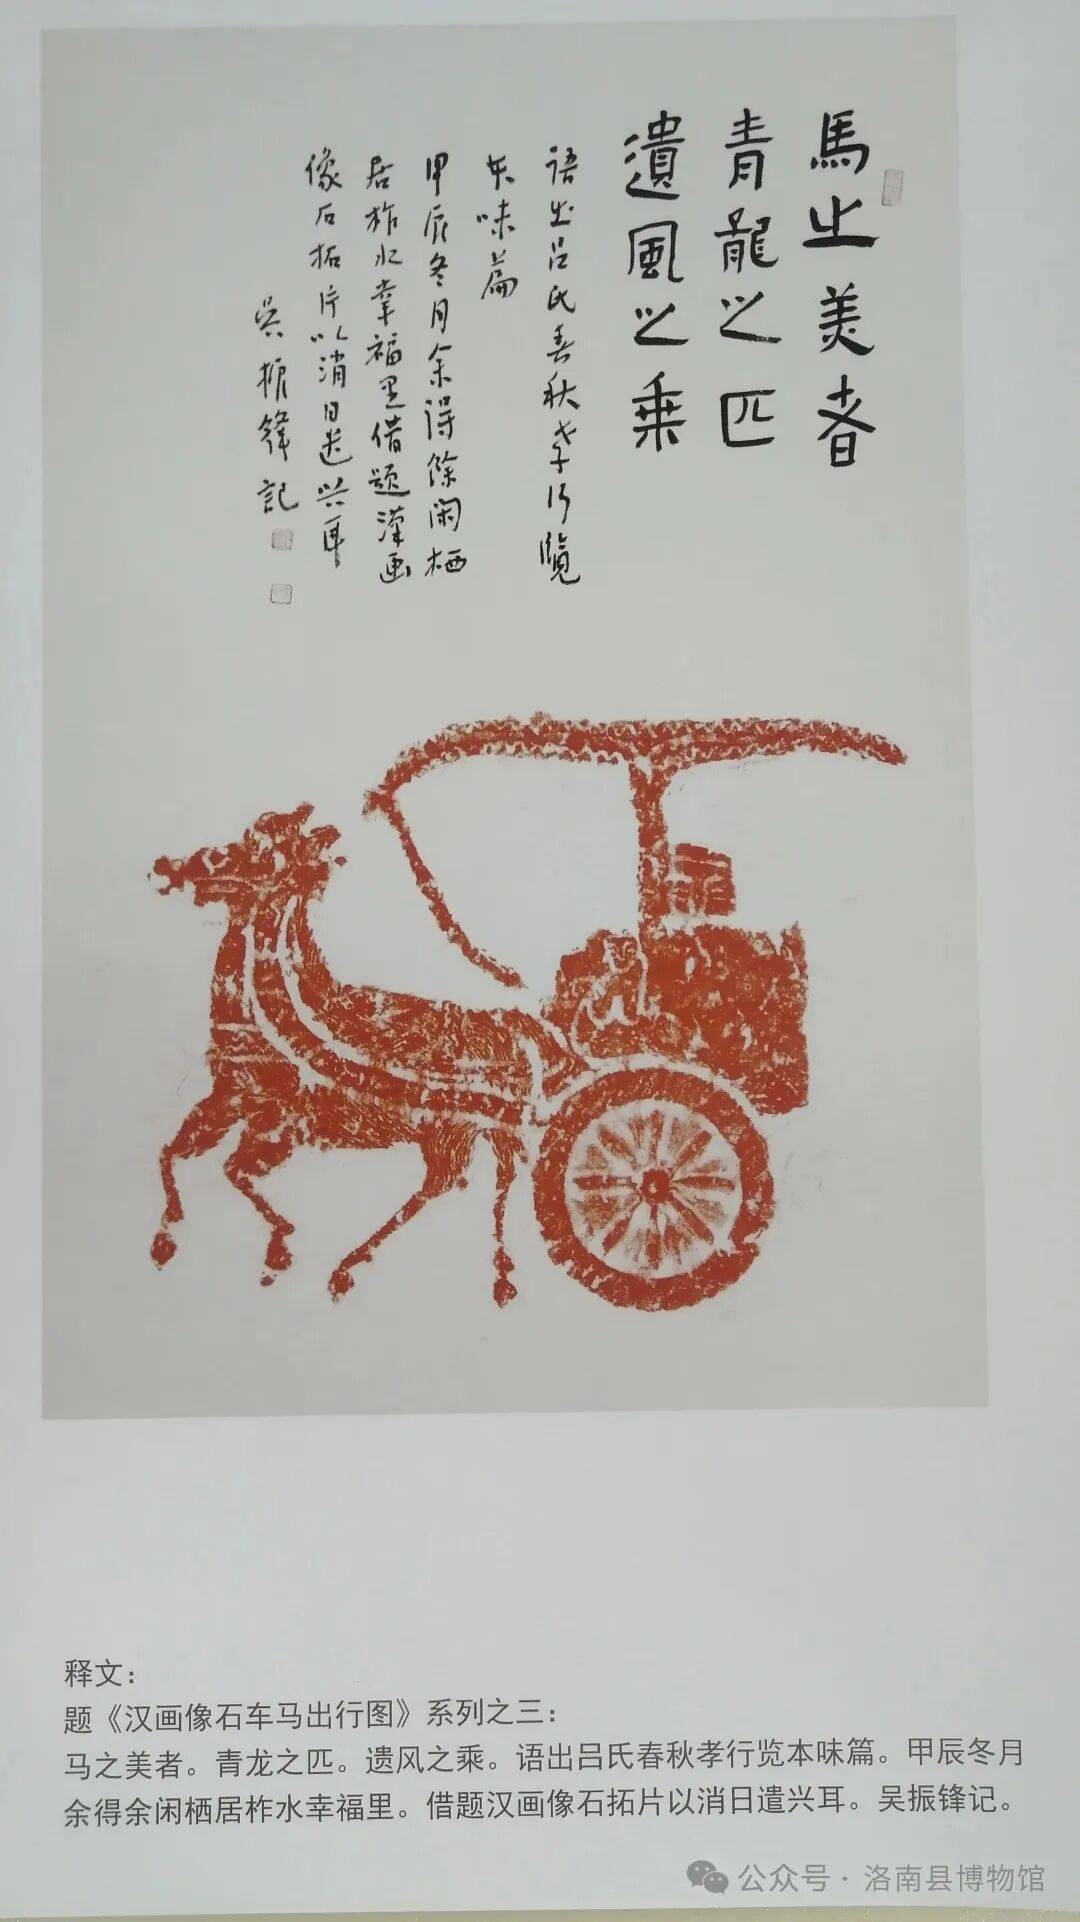 馬之美者
青龍之匹
遺風之乘
语出吕氏春秋孝行覽
本味篇
甲辰冬月余得馀闲栖
居柞水幸福里借题漢画
像石拓片以消日遣兴耳
吳振鋒記
释文：
题《汉画像石车马出行图》系列之三：
马之美者。青龙之匹。遗风之乘。语出吕氏春秋孝行览本味篇。甲辰冬月
余得余闲栖居柞水幸福里。借题汉画像石拓片以消日遣兴耳。吴振锋记。
公众号·洛南县博物馆